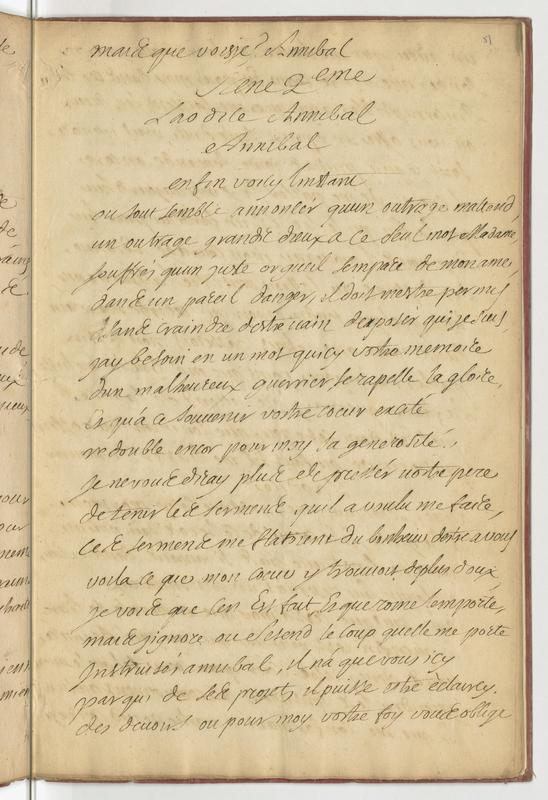 81
mais que vois je? Annibal
Scene 2eme
Laodice Annibal
Annibal
enfin voicy linstant
ou tout semble annoncer quun outrage mattend,
un outrage grands dieux a ce seul mot Madame,
souffrés quun juste orgueil sempare de mon ame,
dans un pareil danger, il doit mestre permis
sans craindre destre vain dexposer qui je suis,
jay besoin en un mot quicy votre memoire
dun malheureux guerrier se rapelle la gloire,
Et qua ce souvenir vostre coeur excité
redouble encor pour moy sa generosité.
je ne vous diray plus de presser vostre pere
de tenir les serments quil a voulu me faire,
ces serments me flatoient du bonheur destre a vous
voila ce que mon coeur y trouvoit de plus doux
je vois que cen Est fait, Et que rome lemporte,
mais jignore ou sétend le coup quelle me porte
Instruisés annibal, il na que vous icy
par qui de ses projets il puisse estre eclaircy.
des devoirs ou pour moy vostre foy vous oblige